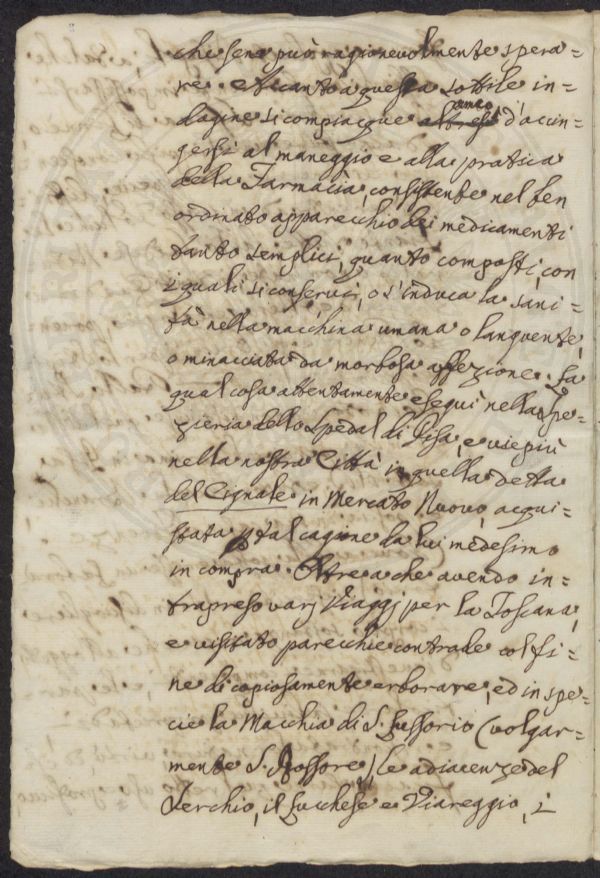 che sene può ragionevolmente spera=
re. Accanto a questa sottile in=
dagine si compiacque anco d'accin=
gersi al maneggio e alla pratica
della Farmacia, consistente nel ben
ordinato apparecchio dei medicamenti
tanto semplici, quanto composti, con
i quali si conservi, o s'induca la sani=
tà nella macchina umana o languente,
o minacciata da morbosa affezione. La
qual cosa attentamente eseguì nella Spe=
zieria dello Spedal di Pisa, e viepiù
nella nostra Città in quella detta
del Cignale in Mercato Nuovo, acqui=
stata p tal cagione da lui medesimo
in compra. Oltre a che avendo in=
trapreso varj Viaggj per la Toscana,
e visitato parecchie contrade col fi=
ne di copiosamente erborare, ed in spe=
cie la Macchia di S. Lussorio (volgar=
mente S. Rossore) le adiacenze del
Serchio, il Lucchese e Viareggio, i